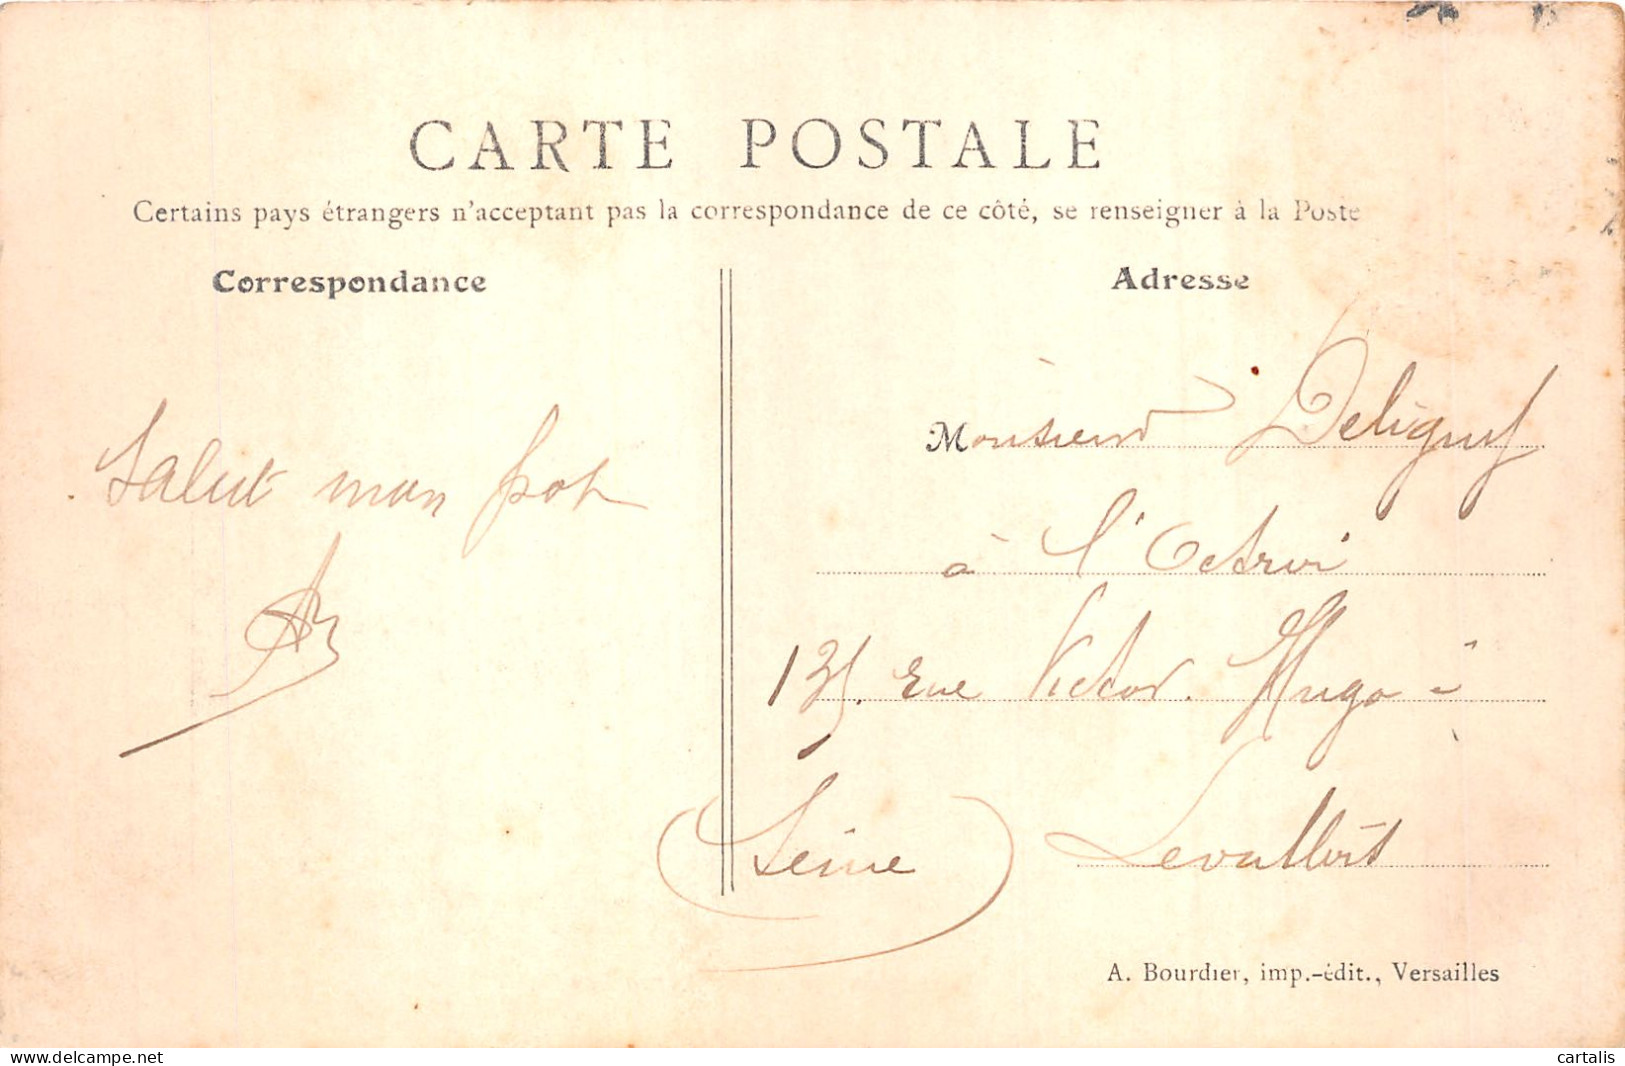 CARTE POSTALE
Certains pays étrangers n'acceptant pas la correspondance de ce côté, se renseigner à la Poste
Correspondance
Adresse
Salut mon pot
Monsieur Deligny
à l'Octroi
135, Rue Victor Hugo
Levallois
(Seine)
A. Bourdier, imp.-édit., Versailles
delcampe.net
cartalis